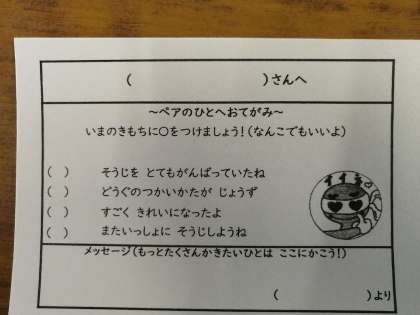 (　　　　　　　　)さんへ
～ペアのひとへおてがみ～
いまのきもちに○をつけましょう!(なんこでもいいよ)
(　)　そうじを とてもがんばっていたね
(　)　どうぐのつかいかたが じょうず
(　)　すごく きれいになったよ
(　)　またいっしょに そうじしようね
メッセージ(もっとたくさんかきたいひとは ここにかこう!)
(　　　　　　　　)より